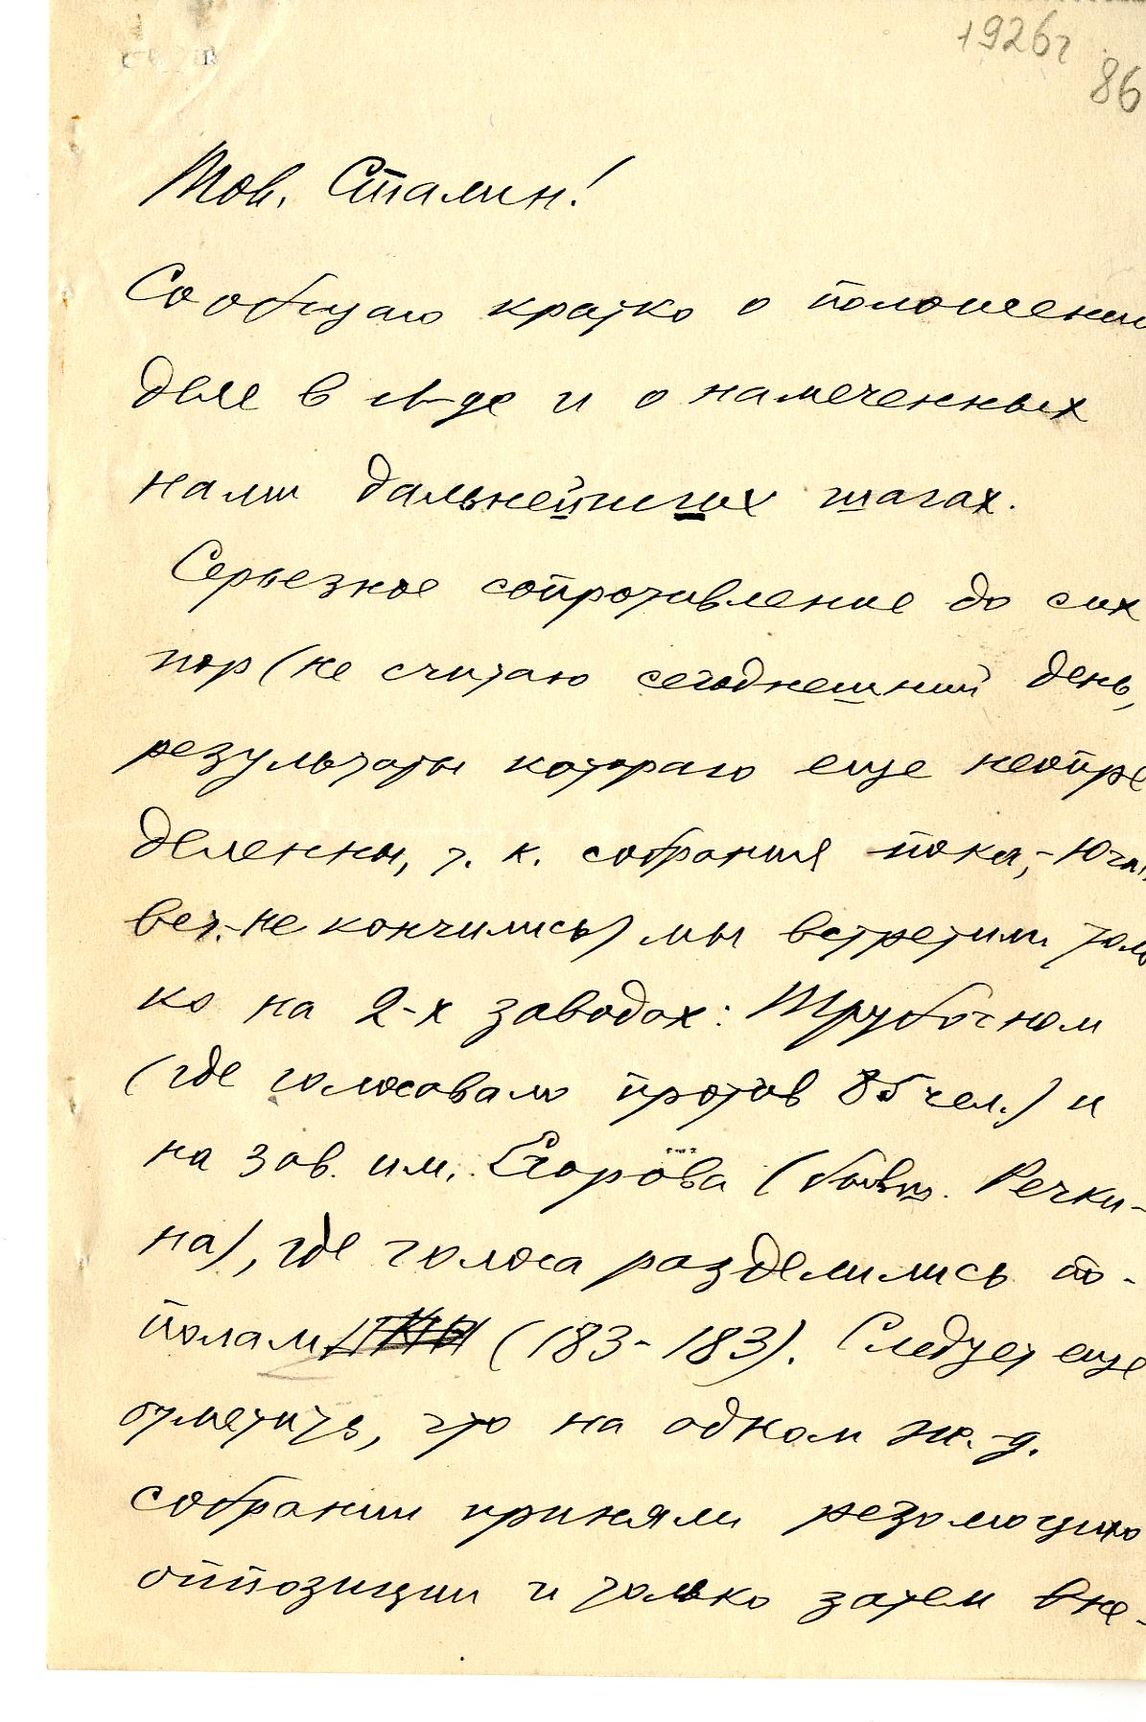 1926г
86
Тов. Сталин!
Сообщаю кратко о положении
дел в Л-де и о намеченных
нами дальнейших шагах.
Серьезное сопротивление до сих
пор (не считаю сегоднешний день,
результаты котораго еще неопре
деленны, т. к. собрания пока,-
вет.-не кончились) мы встретили толь
ко на 2-х заводах: Трубочном
(где голосовало против 85 чел.) и
на зав. им. Егорова (бывш. Речки-
на), где голоса разделились по-
полам (183-183). Следует еще
отметить, что на одном ж.-д.
собрании приняли резолюцию
оппозиции и только затем вне-